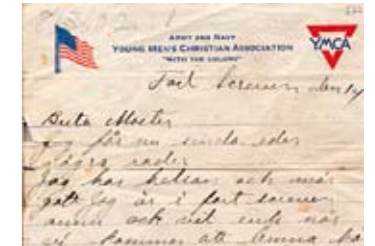 ARMY AND NAVY
YOUNG MEN'S CHRISTIAN ASSOCIATION
"WITH THE COLORS"
YMCA
Fort Screven den 14
Bästa Moster
Jag får nu sända eder
några rader
Jag har helsan och mår
gott Jag är i fort screven
ännu och vet inte när
vi kommer att lemna